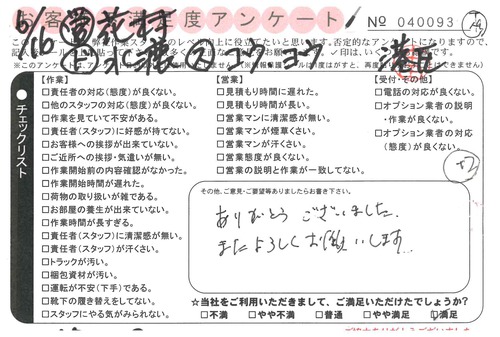 お客様満足度アンケート
No 040093
チェックリスト
【作業】
□責任者の対応(態度)が良くない。
□他のスタッフの対応(態度)が良くない。
□作業を見ていて不安がある。
□責任者(スタッフ)に好感が持てない。
□お客様への挨拶が出来ていない。
□ご近所への挨拶・気遣いが無い。
□作業開始前の内容確認がなかった。
□作業開始時間が遅れた。
□荷物の取り扱いが雑である。
□お部屋の養生が出来ていない。
□作業時間が長すぎる。
□責任者(スタッフ)に清潔感が無い。
□責任者(スタッフ)が汗くさい。
□トラックが汚い。
□梱包資材が汚い。
□運転が不安(下手)である。
□靴下の履き替えをしてない。
□スタッフにやる気がみられない。
【営業】
□見積もり時間に遅れた。
□見積もり時間が長い。
□営業マンに清潔感が無い。
□営業マンが煙草くさい。
□営業マンが汗くさい。
□営業態度が良くない。
□営業の説明と作業が一致してない。
【受付・その他】
□電話の対応が良くない。
□オプション業者の説明
・作業が良くない。
□オプション業者の対応
(態度)が良くない。
その他、ご意見・ご要望等ありましたらお書き下さい。
ありがとうございました。
またよろしくお願いします
☆当社をご利用いただきまして、ご満足いただけたでしょうか?
□不満 □やや不満 □普通 □やや満足 □満足